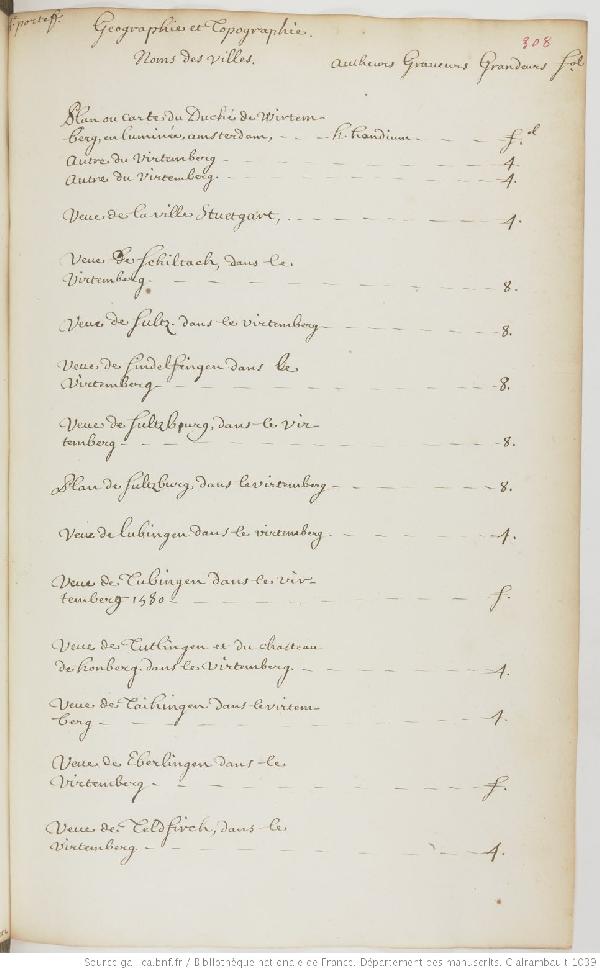 portef.
Geographie et Topographie.
308
Noms des villes. autheurs Graveurs Grandeurs fol
Plan ou carte du Duché de Wirtem-
berg, en luminée, amsterdam, - - - h. handium - - - f.ol
Autre du Virtemberg - - - 4.
Autre du Virtemberg. - - - 4.
Veue de la ville Stuetgart, - - - 4.
Veue de Schiltach, dans le
Virtemberg - - - 8.
Veue de Sultz dans le virtemberg - - - 8.
Veue de Sindelfingen dans le
Virtemberg - - - 8.
Veue de Sultzbourg, dans le vir-
temberg - - - 8.
Plan de Sultzburg, dans le virtemberg - - - 8.
Veue de lubingen dans le virtemberg - - - 4.
Veue de Tubingen dans le vir-
temberg 1580 - - - f.
Veue de Tutlingen et du chasteau
de honberg. dans le Virtemberg. - - - 4.
Veue de Taihingen dans le virtem-
berg - - - 4.
Veue de Eberlingen dans le
Virtemberg - - - f.
Veue de Teldfirch, dans le
Virtemberg. - - - 4.
Source gallica.bnf.fr / Bibliothèque nationale de France. Département des manuscrits. Clairambault 1039